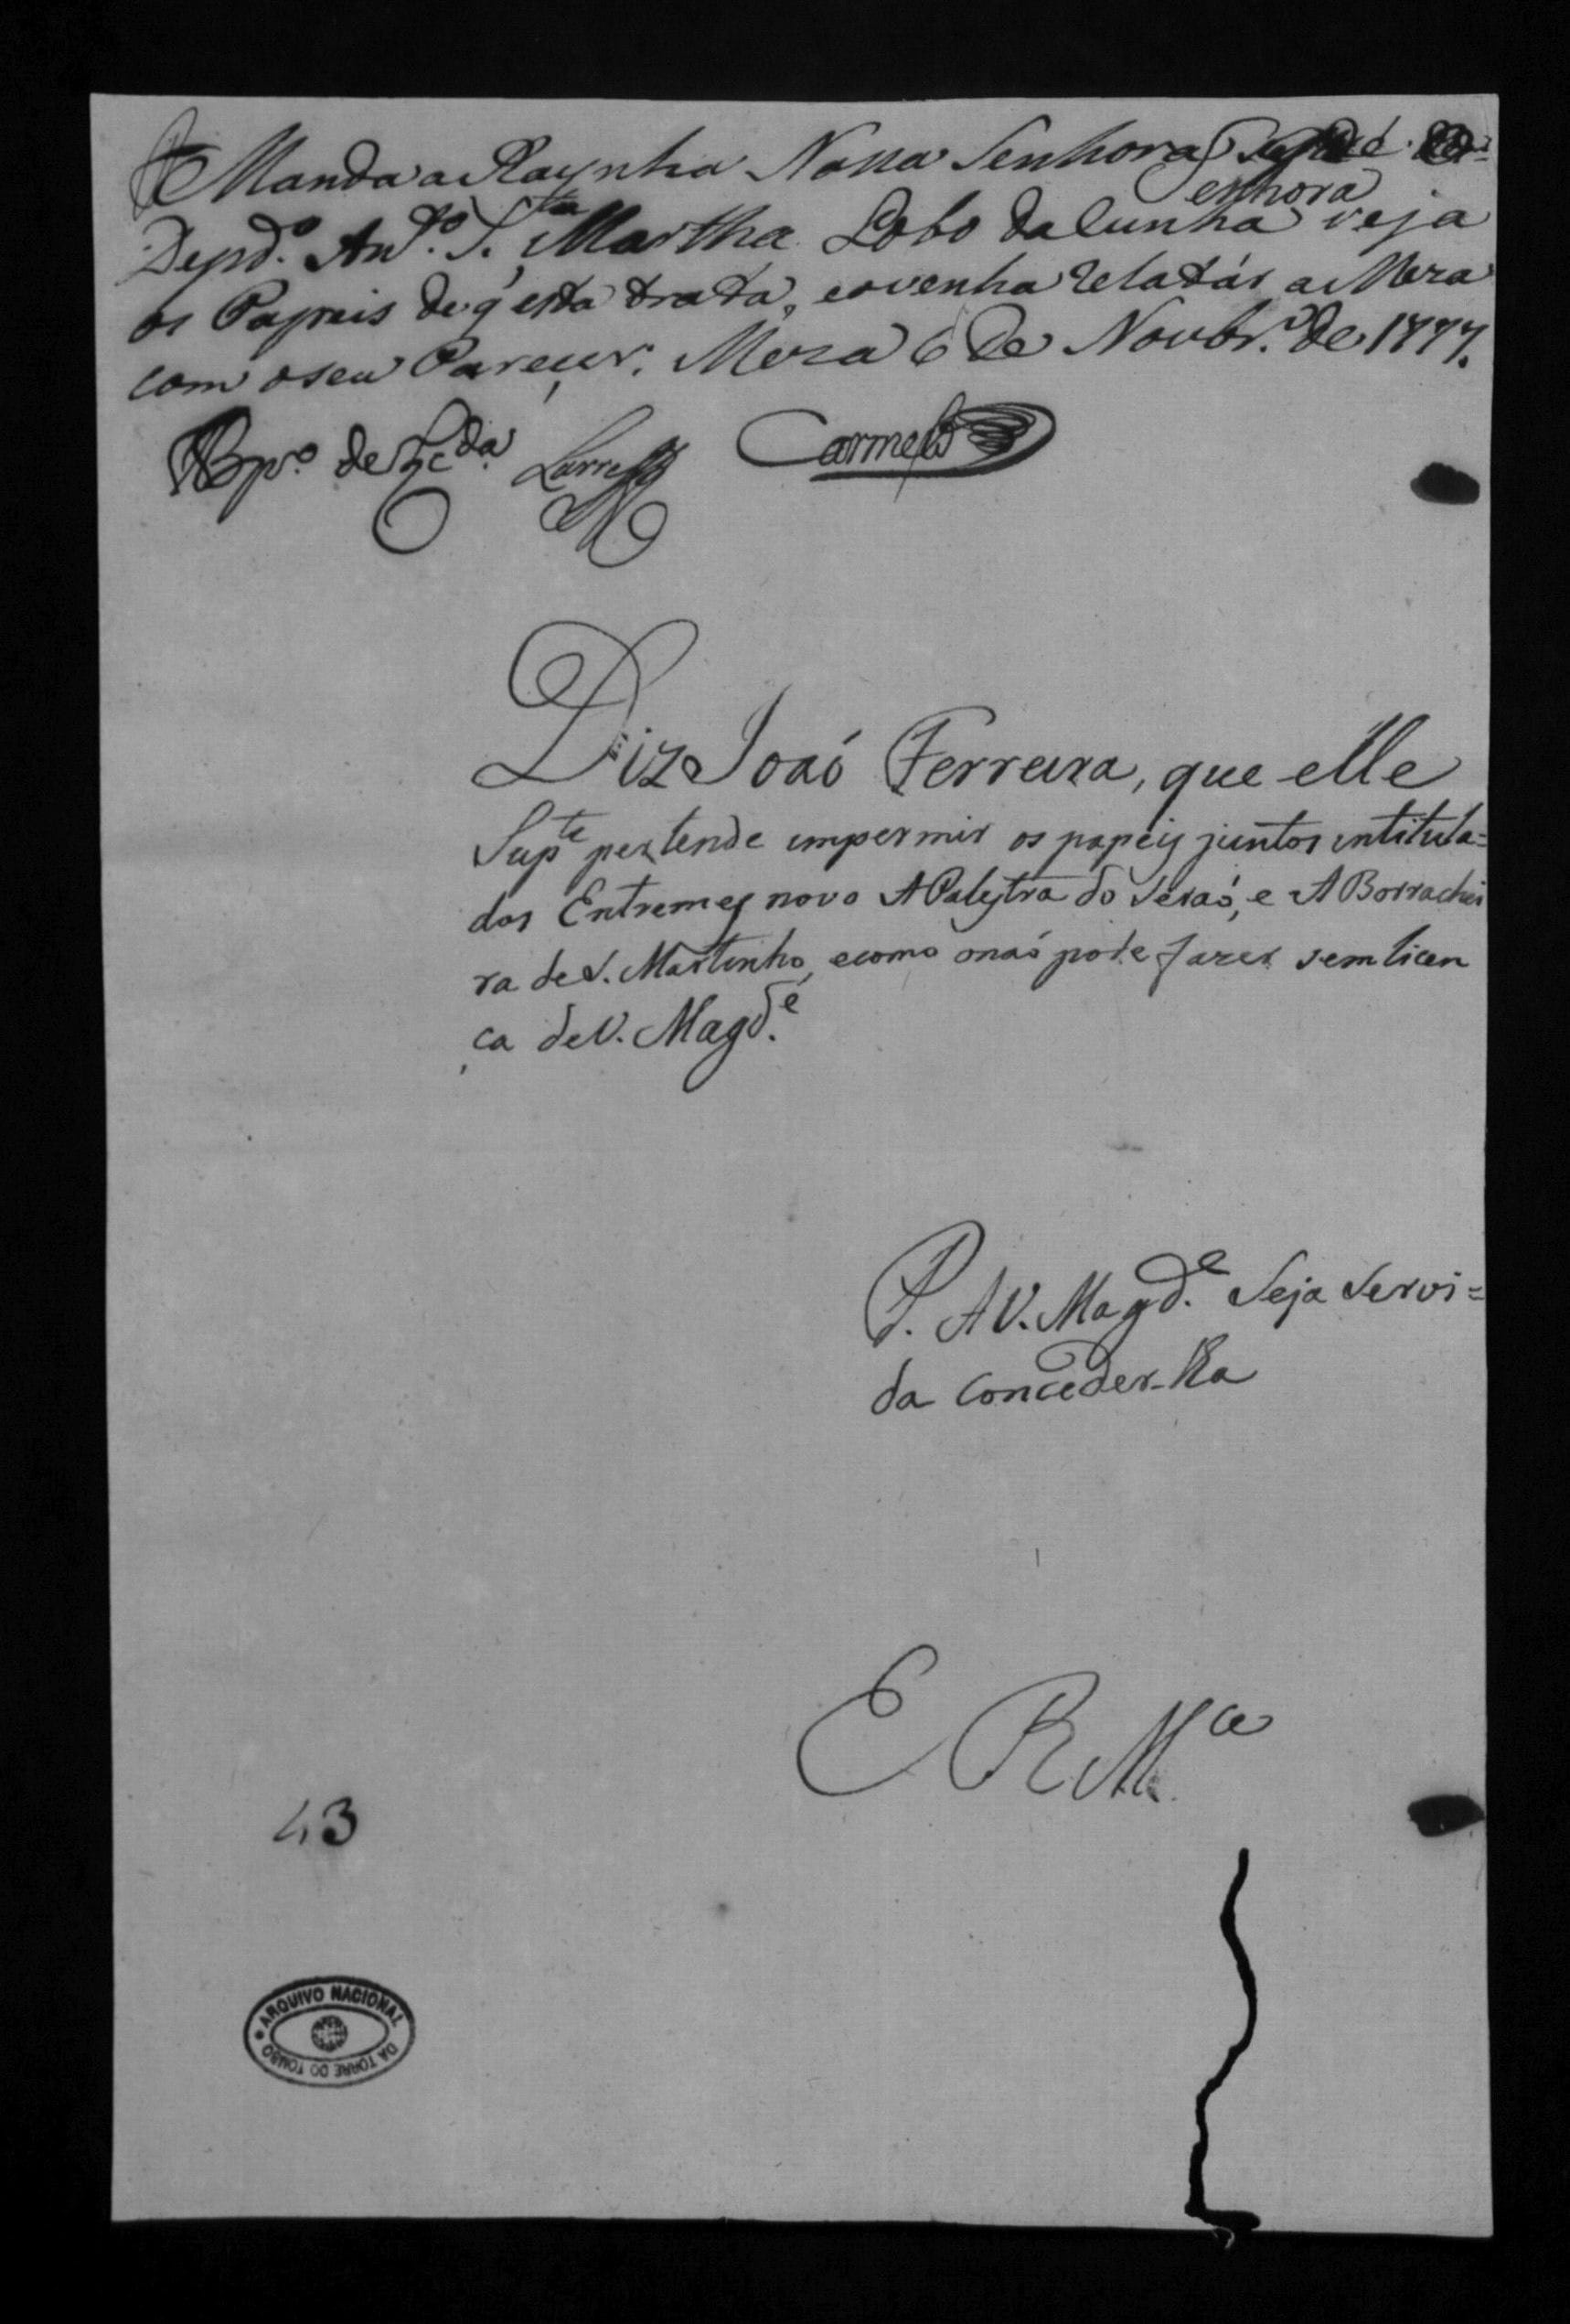 Manda a Raynha Nossa Senhora
enhora
Depd.º Ant.º S.ta Martha Lobo da Cunha veja
os Papeis de q̃ esta trata, e o venha relatár a Meza
com o seu Pareçer. Meza 6 de Novbr.º de 1777.
Bpº. de Carmelo
Diz Joaó Ferreira, que elle
Sup.te pertende impermir os papeis juntos intitula=
dos Entremes novo A Palestra do Seraó, e A Borrachei
ra de S. Martinho, e como o naó pode fazer sem licen
ça de V. Magd.e
P. A V. Magd.e Seja Servi=
da Conceder-lha
E R M.ce
43
ARQUIVO NACIONAL
DA TORRE DO TOMBO